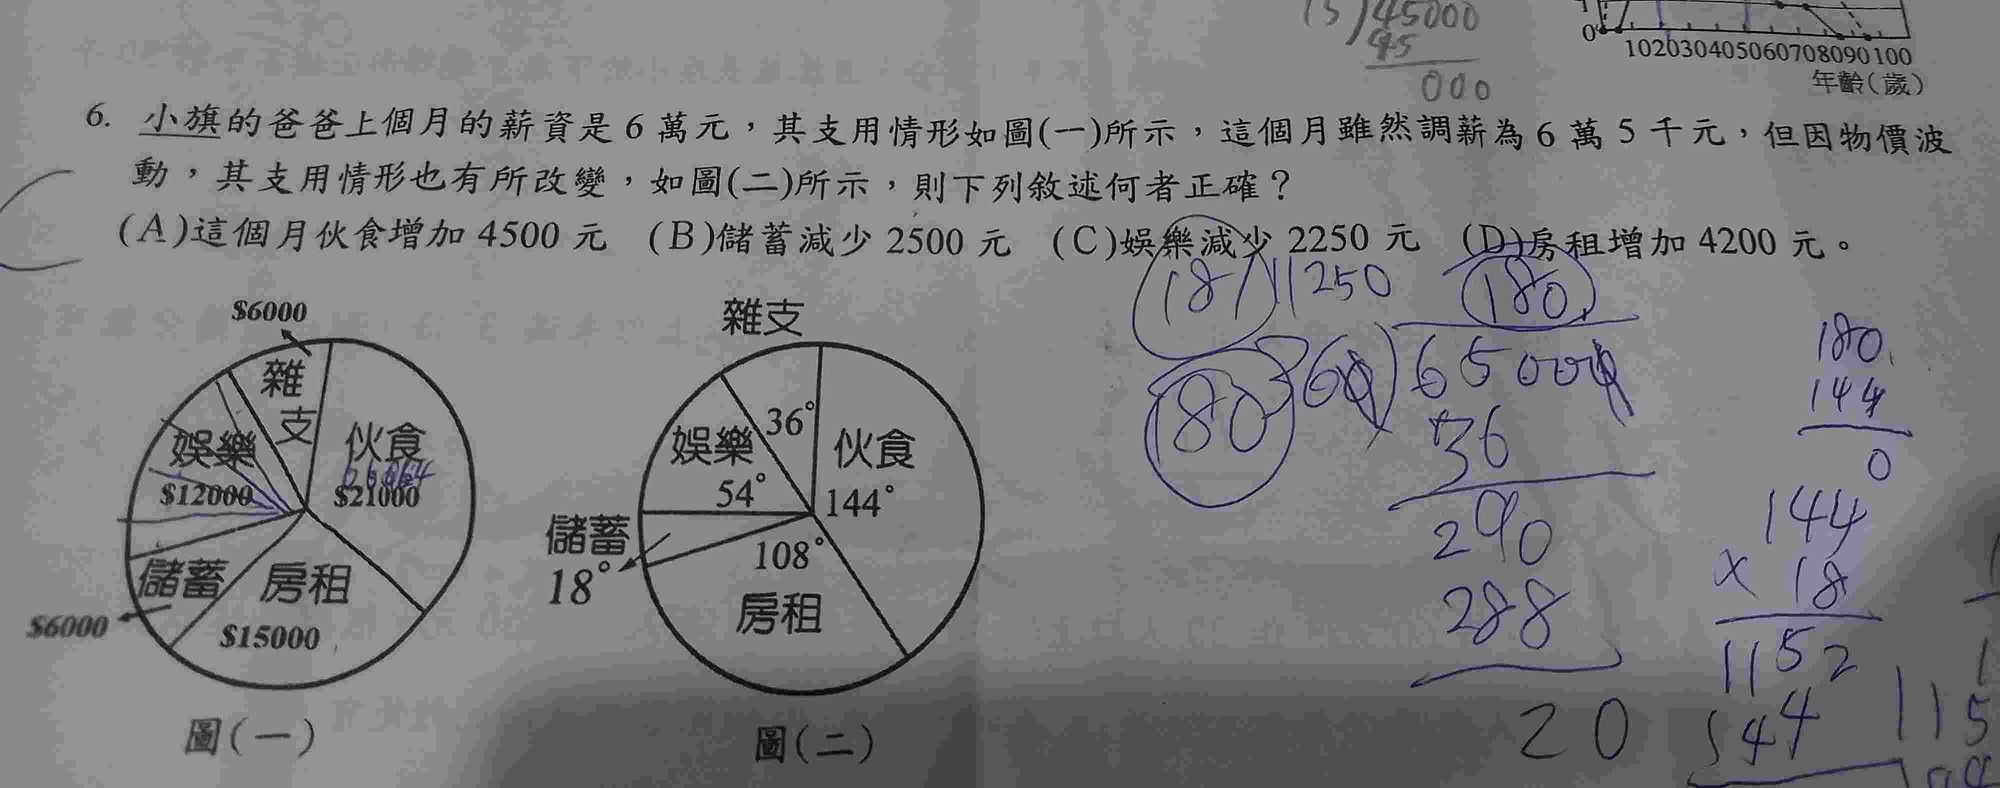 15)45000
45
000
0
102030405060708090100
年齡(歲)
6. 小旗的爸爸上個月的薪資是6萬元，其支用情形如圖(一)所示，這個月雖然調薪為6萬5千元，但因物價波
動，其支用情形也有所改變，如圖(二)所示，則下列敘述何者正確？
(A)這個月伙食增加4500元 (B)儲蓄減少2500元 (C)娛樂減少2250元 (D)房租增加4200元。
$6000
雜支
伙食
$21000
娛樂
$12000
儲蓄
$6000
房租
$15000
圖(一)
雜支
36°
伙食
144°
娛樂
54°
儲蓄
18°
108°
房租
圖(二)
11250
180
180
65000
36
290
288
20
180
144
0
144
×18
1152
144
115